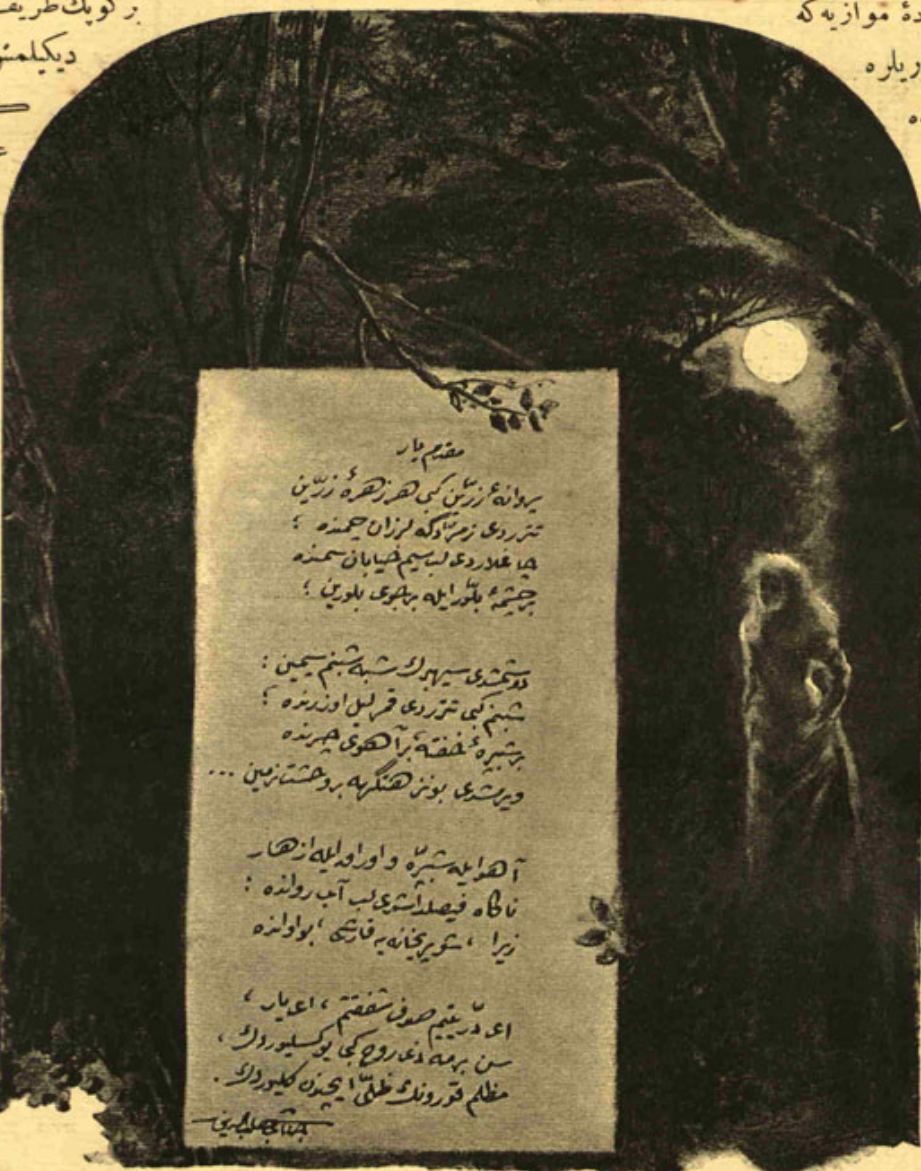 بر كوپك ظریف
دیكیلمش
دهٔ موازیه كه
ریلره
ه
مقدم یار
پروانهٔ زرّین كبی هر زهرهٔ زرّین
تتردی زمرّدكه لرزان چمنده ؛
چاغلاردی لب سیم خیابان سمنده
بر چشمهٔ بلّور ایله بر جوی بلورین ؛
دوشمشدی سپهرك شبه شبنم سیمین :
شبنم كبی تتردی قمر لیل اوزرنده ؛
بر شبپرهٔ خفته ، بر آهوی چرنده
ویرمشدی بوتنها هنگامه بر وحشت زمین ...
آهو ایله شبپرّه و اوراق ایله ازهار
ناكاه فیصلداشدی لب آب روانده :
زیرا ، شو پریخانه یه قارشی ، بو اوانده
ای درّ یتیم صدف شفقتم ، ای یار ،
سن برمه ذی روح كبی یوكسلیوردك ،
مظلم قورونك ظلّی ایچندن كلیوردك .
جناب شهاب الدین